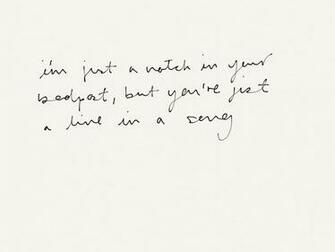 i'm just a notch in your
bedpost, but you're just
a line in a song